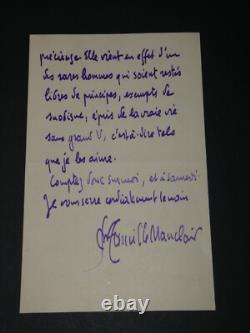 précieuse. Elle vient en effet d'un
des rares hommes qui soient restés
libres de principes, exempts de
snobisme, épris de la vraie vie
sans grand V, c'est-à-dire tels
que je les aime.
Comptez donc sur moi, et à samedi.
Je vous serre cordialement la main
Camille Mauclair